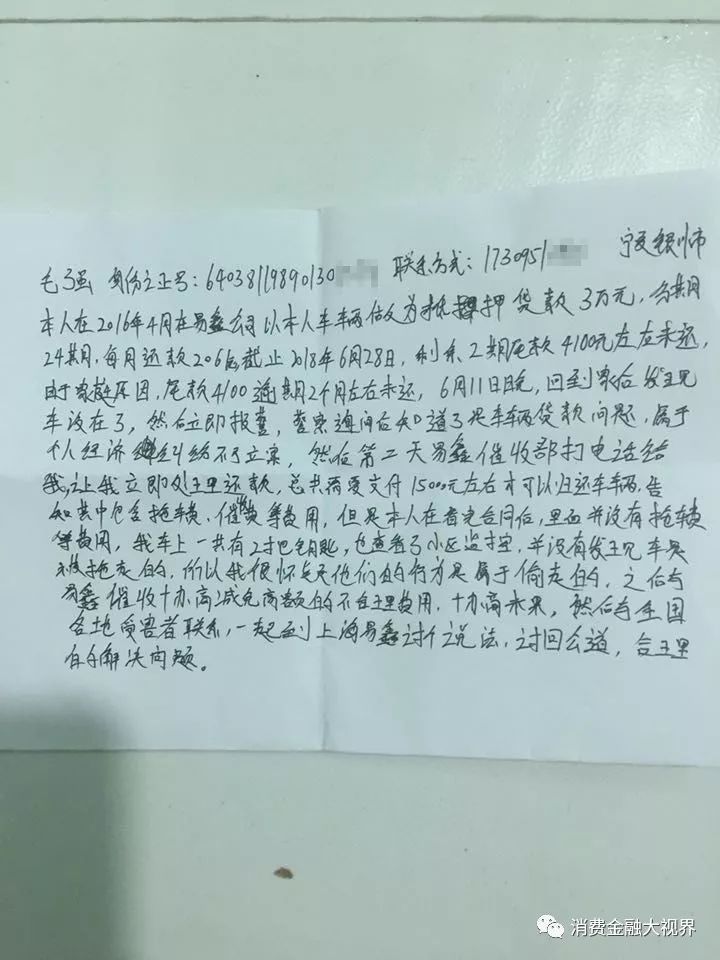 毛强 身份证号：64038119890130 联系方式：1730951 宁夏银川市
本人在2016年4月在易鑫公司以本人车辆估价为抵押贷款3万元，分期
24期，每月还款206，截止2018年6月28日，剩余2期尾款4100元左右未还，
由于家庭原因，尾款4100逾期2个月左右未还，6月11日晚，回到家后发现
车没在了，然后立即报警，警察询问后知道了是车辆贷款问题，属于
个人经济纠纷不予立案，然后第二天易鑫催收部打电话给
我，让我立即处理还款，总共需要支付15000元左右才可以归还车辆，告
知其中包含拖车费、催收费等费用，但是本人在看完合同后，里面并没有拖车费
等费用，我车上一共有2把钥匙，也查看了小区监控，并没有发现车是
被拖走的，所以我很怀疑他们的行为是属于偷走的，之后与
易鑫催收协商减免高额的不合理费用，协商未果，然后与全国
各地受害者联系，一起到上海易鑫讨个说法，讨回公道，合理
的解决问题。
消费金融大视界